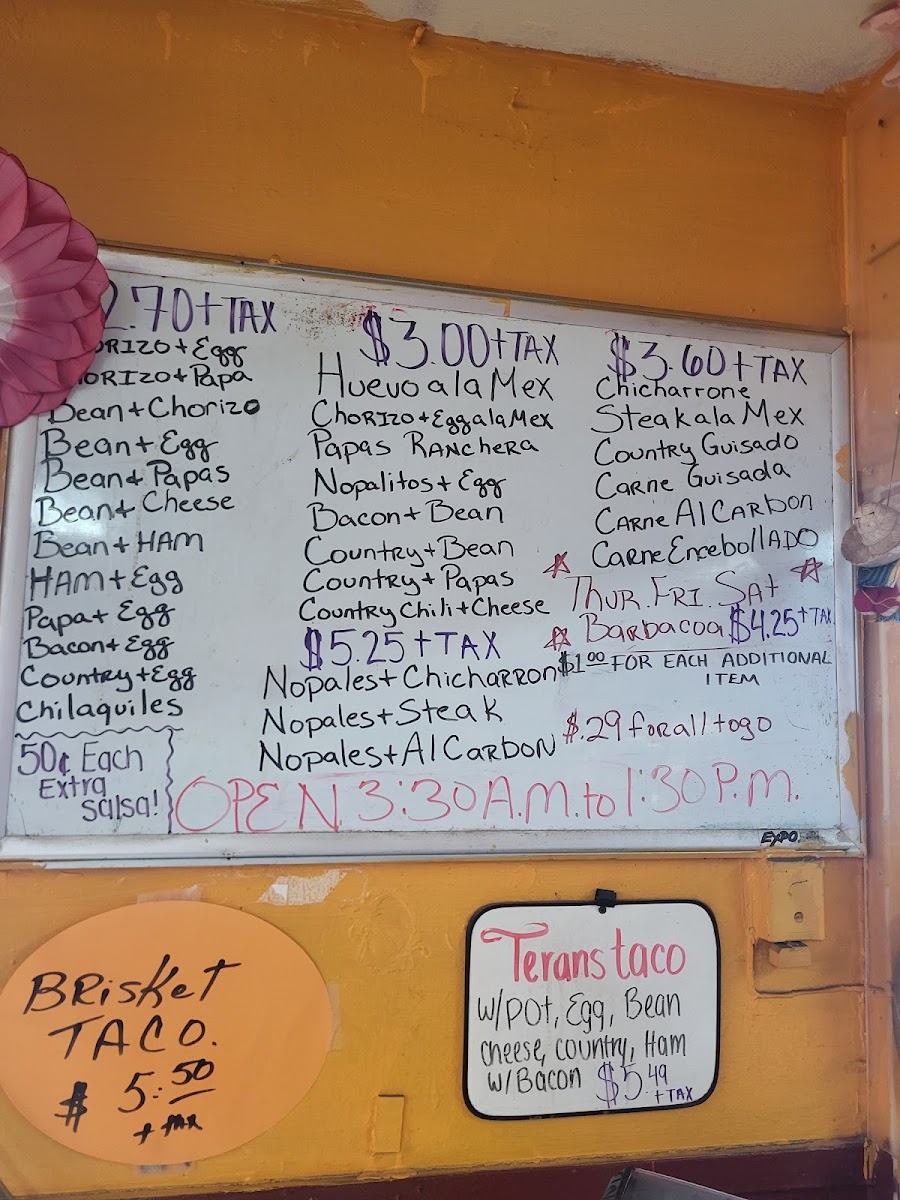 2.70+TAX
ORIZO+Egg
HORIZO+Papa
Bean+Chorizo
Bean+Egg
Bean+Papas
Bean+Cheese
Bean+HAM
HAM+Egg
Papa+Egg
Bacon+Egg
Country+Egg
Chilaquiles
50¢ Each
Extra
Salsa!
$3.00+TAX
Huevo a la Mex
CHORIZO+Egg a la Mex
Papas RANCHERA
Nopalitos+Egg
Bacon+Bean
Country+Bean
Country+Papas
Country Chili+Cheese
$5.25+TAX
Nopales+Chicharron
Nopales+Steak
Nopales+Al CARBON
$3.60+TAX
Chicharrone
Steak a la Mex
Country Guisado
CARNE Guisada
CARNE Al CARBON
CARNE EncebollADO
THUR. FRI. SAT
BARBACOA $4.25+TAX
$1.00 FOR EACH ADDITIONAL
ITEM
$.29 for all togo
OPEN 3:30 A.M. to 1:30 P.M.
EXPO
BRisket
TACO.
$ 5.50
+ TAX
Terans taco
w/POT, Egg, Bean
cheese, country, Ham
w/Bacon $5.49
+TAX